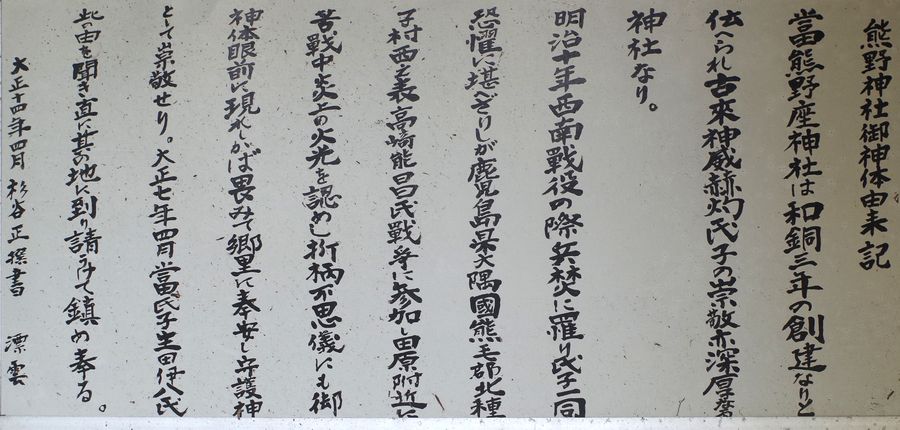 熊野神社御神体由来記
當熊野座神社は和銅三年の創建なりと
伝へられ古来神威赫灼氏子の崇敬亦深厚
神社なり。
明治十年西南戦役の際兵焚に羅り氏子一同
恐懼に堪へざりしが鹿児島県大隅國熊毛郡北種
子村西之表高崎能昌氏戦争に参加し田原附近に
苦戦中炎上の火光を認めし折柄不思儀にも御
神体眼前に現れしかば畏みて郷里に奉安し守護神
として崇敬せり。大正七年四月當氏子生田伊八氏
此の由を聞き直に其の地に到り請ふて鎮め奉る。
大正十四年四月 杉谷正撰書 漂雲